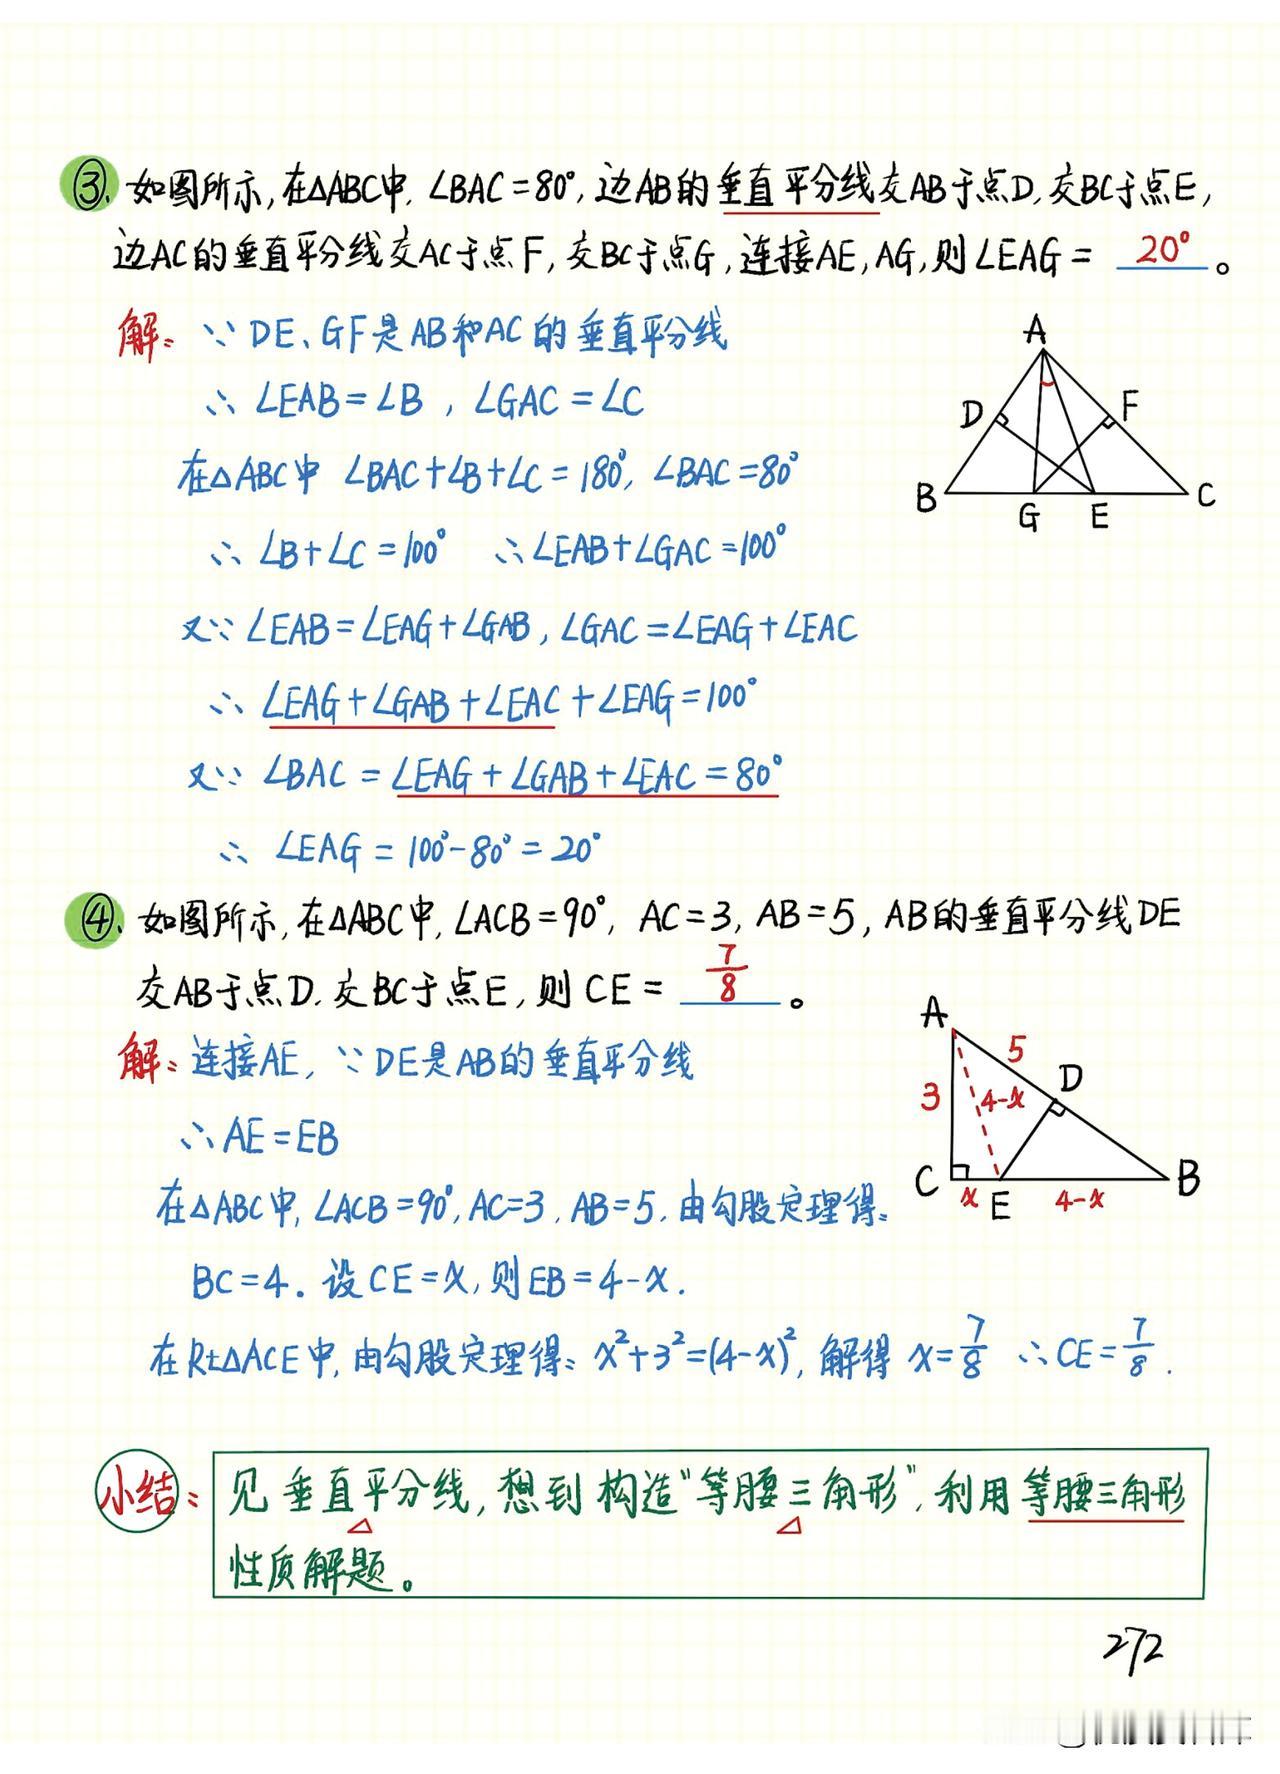 ③. 如图所示,在△ABC中,∠BAC=80°,边AB的垂直平分线交AB于点D,交BC于点E,
边AC的垂直平分线交AC于点F,交BC于点G,连接AE,AG,则∠EAG= 20°。
解: ∵DE、GF是AB和AC的垂直平分线
∴∠EAB=∠B,∠GAC=∠C
在△ABC中 ∠BAC+∠B+∠C=180°,∠BAC=80°
∴∠B+∠C=100° ∴∠EAB+∠GAC=100°
又∵∠EAB=∠EAG+∠GAB,∠GAC=∠EAG+∠EAC
∴∠EAG+∠GAB+∠EAC+∠EAG=100°
又∵∠BAC=∠EAG+∠GAB+∠EAC=80°
∴∠EAG=100°-80°=20°
A
D
F
B
G
E
C
④. 如图所示,在△ABC中,∠ACB=90°, AC=3, AB=5, AB的垂直平分线DE
交AB于点D,交BC于点E,则CE= 7/8 。
解: 连接AE, ∵DE是AB的垂直平分线
∴AE=EB
在△ABC中,∠ACB=90°,AC=3,AB=5,由勾股定理得:
BC=4. 设CE=x,则EB=4-x.
在Rt△ACE中,由勾股定理得: x²+3²=(4-x)²,解得 x=7/8 ∴CE=7/8.
A
5
D
3
4-x
C
x
E
4-x
B
小结: 见垂直平分线,想到构造"等腰三角形",利用等腰三角形
性质解题。
272